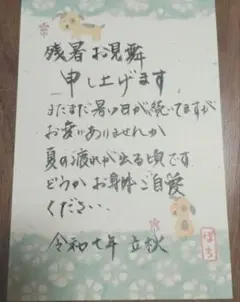 残暑お見舞
申し上げます
まだまだ暑い日が続いてますが
お変りありませんか
夏の疲れが出る頃です
どうかお身体ご自愛
ください
令和七年 立秋